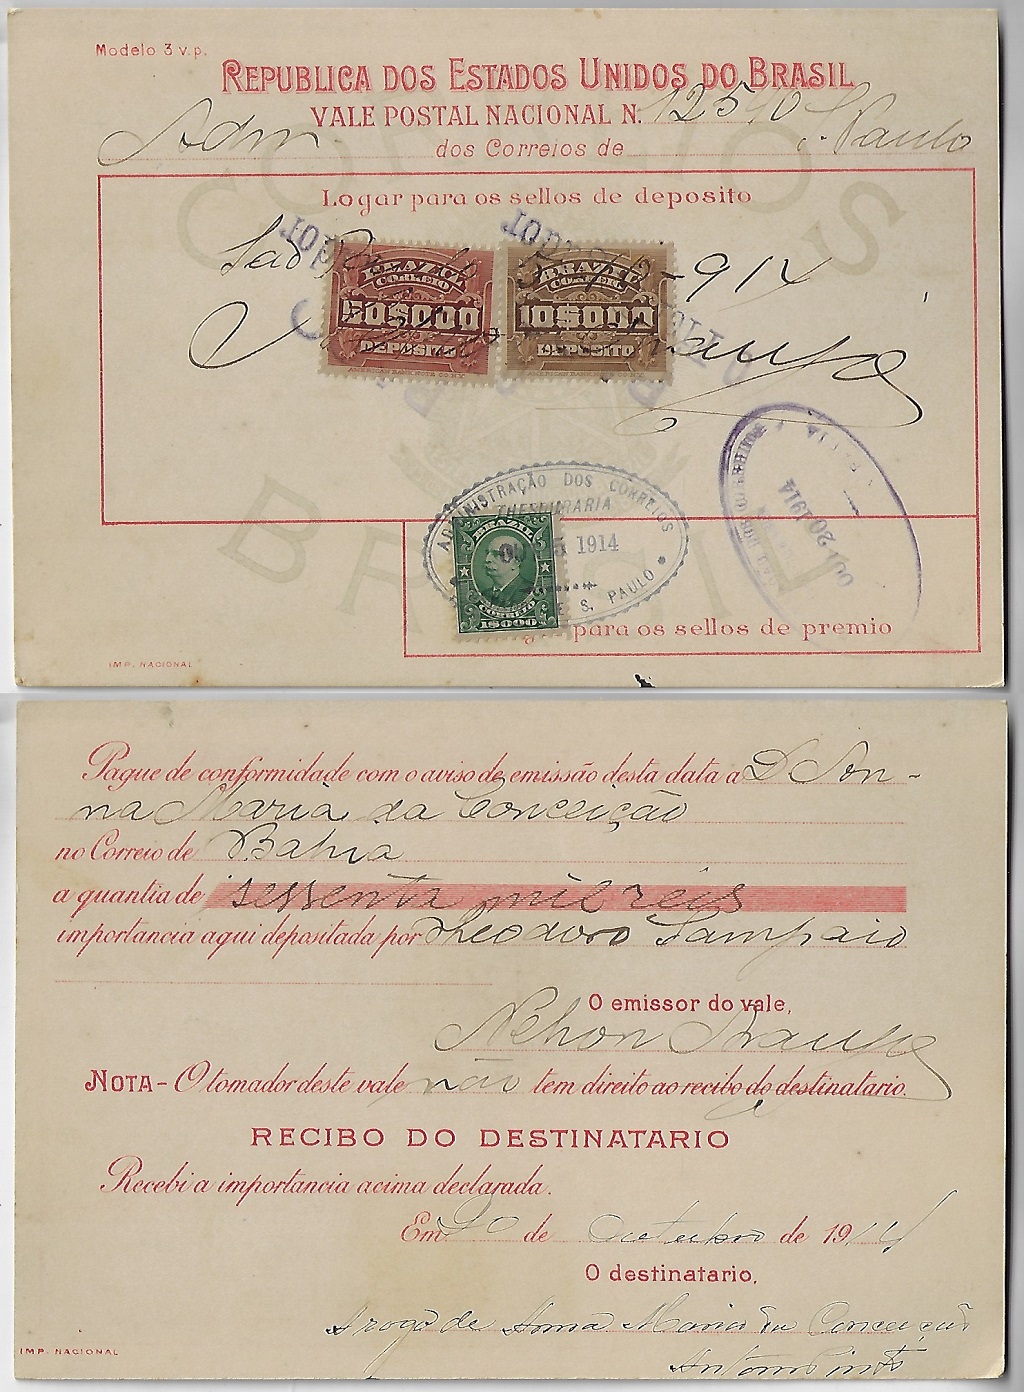 Modelo 3 v.p.
REPUBLICA DOS ESTADOS UNIDOS DO BRASIL
VALE POSTAL NACIONAL N. 12590
Adm dos Correios de S. Paulo
CORREIOS
BRASIL
Logar para os sellos de deposito
São Paulo - 914
BRAZIL
CORREIO
50$000
DEPOSITO
AMERICAN BANK NOTE CO. N.Y.
BRAZIL
CORREIO
10$000
DEPOSITO
AMERICAN BANK NOTE CO. N.Y.
Araujo
OUT 20 1914
ADMINISTRAÇÃO DOS CORREIOS
THESOURARIA
OUT 5 1914
DE S. PAULO
BRAZIL
CORREIO
1$000
para os sellos de premio
IMP. NACIONAL
Pague de conformidade com o aviso de emissão desta data a D. An-
na Maria da Conceição
no Correio de Bahia
a quantia de sessenta mil réis
importancia aqui depositada por Theodoro Sampaio
O emissor do vale,
Nelson Araujo
NOTA - O tomador deste vale não tem direito ao recibo do destinatario.
RECIBO DO DESTINATARIO
Recebi a importancia acima declarada.
Em 20 de Outubro de 1914
O destinatario,
A rogo de Anna Maria da Conceição
Antonio Pinto
IMP. NACIONAL